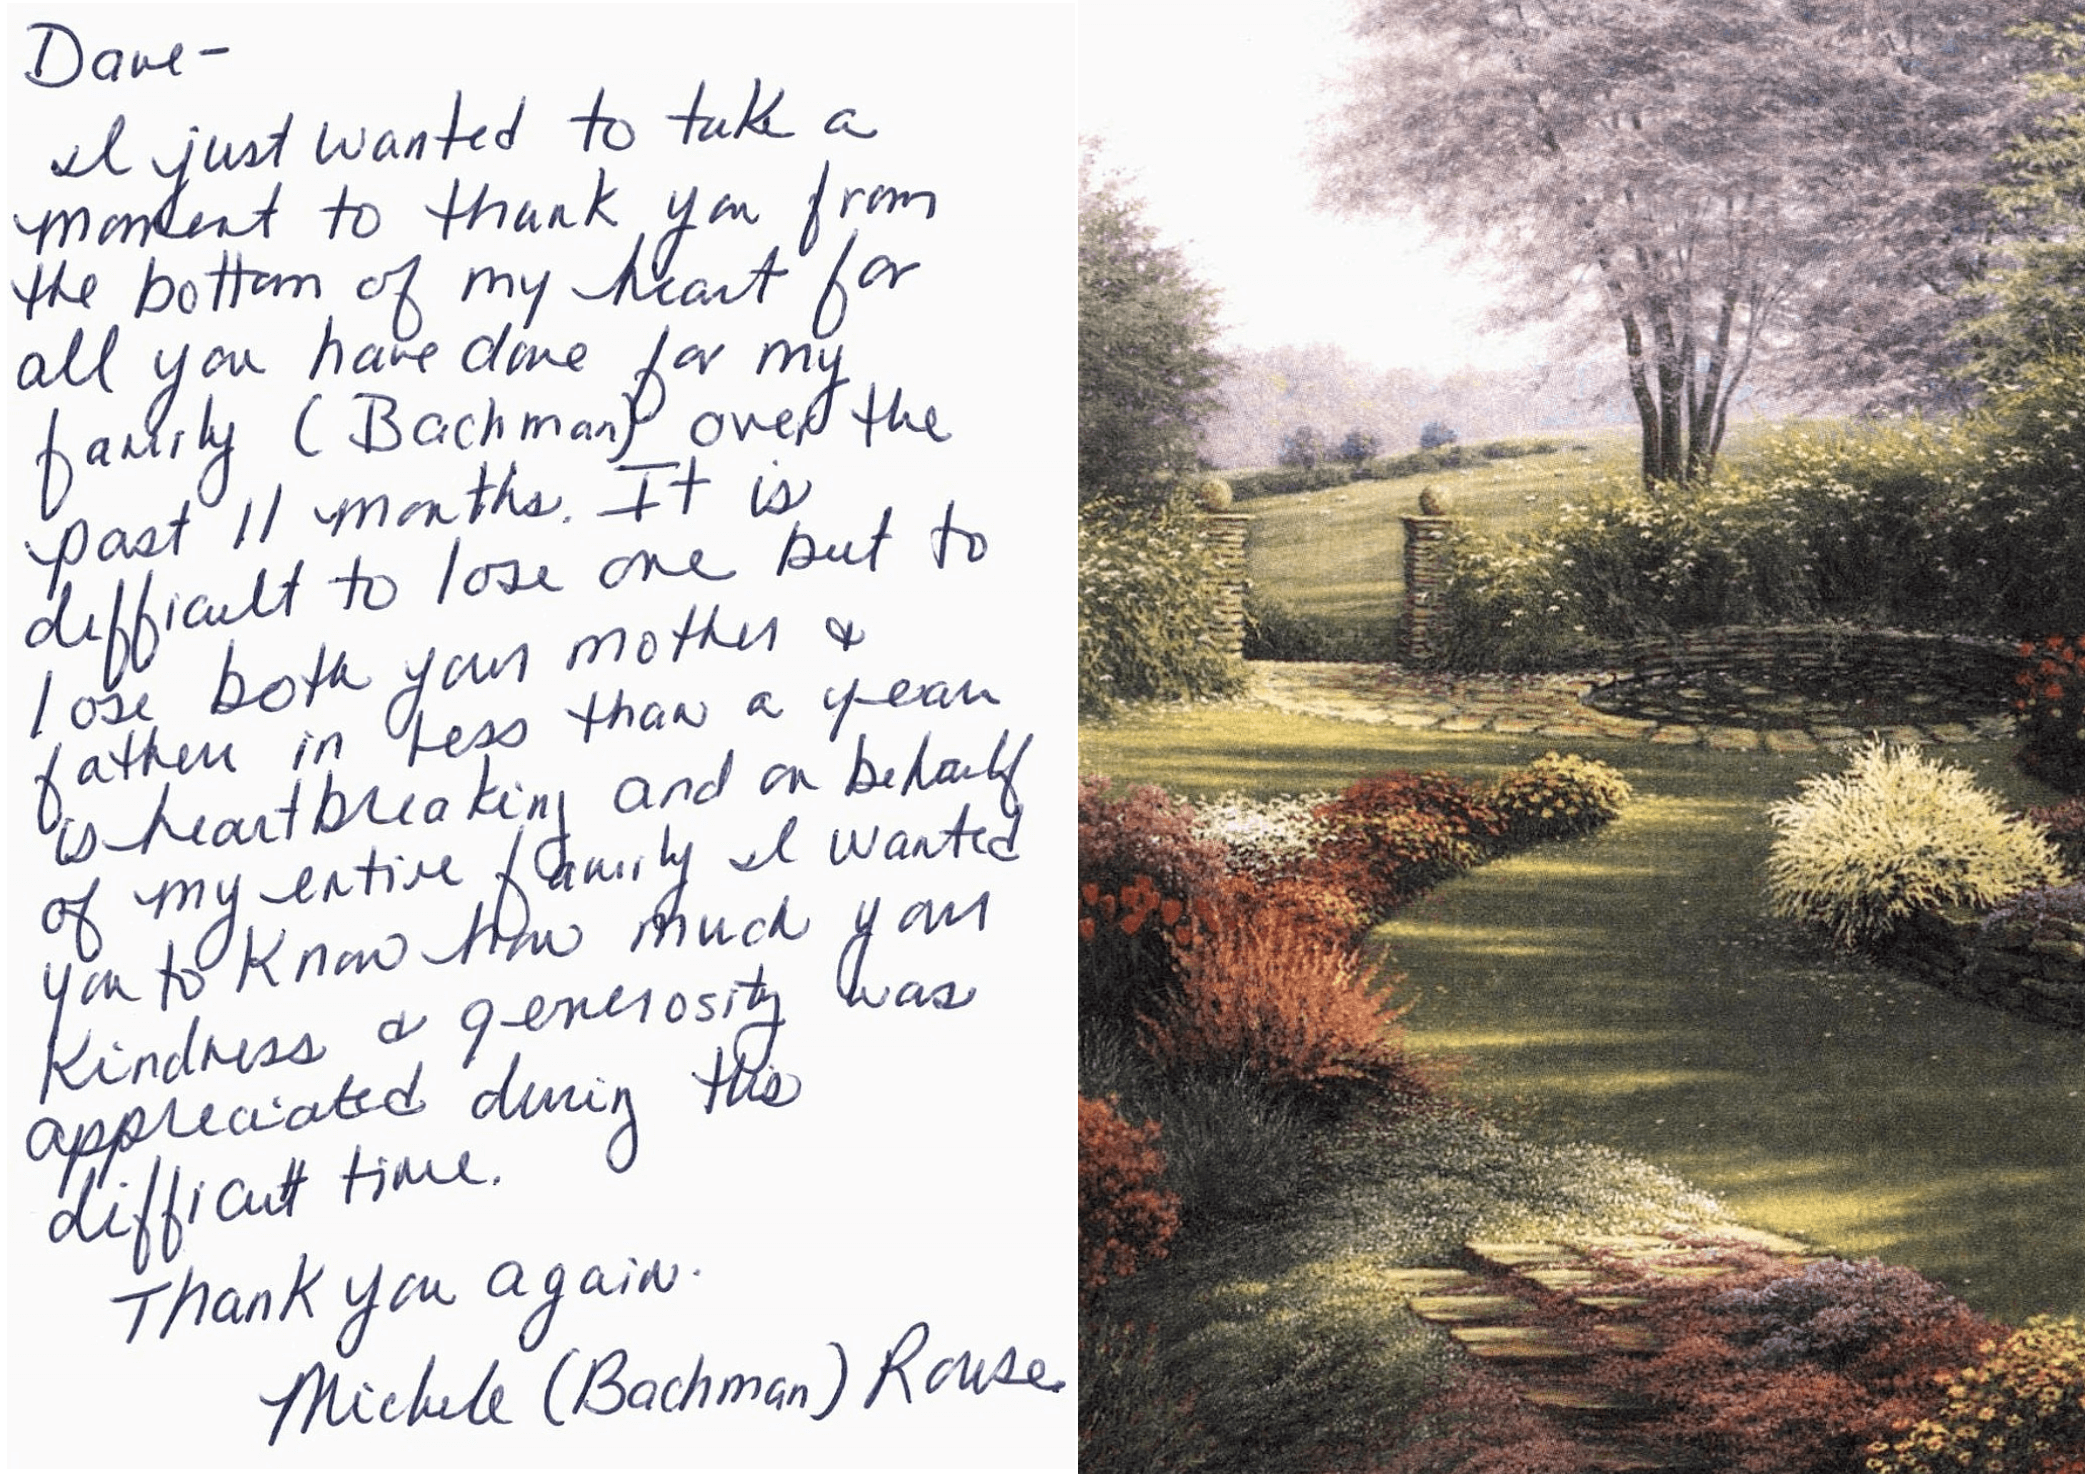 Dave-
I just wanted to take a
moment to thank you from
the bottom of my heart for
all you have done for my
family (Bachman) over the
past 11 months. It is
difficult to lose one but to
lose both your mother &
father in less than a year
is heartbreaking and on behalf
of my entire family I wanted
you to know how much your
kindness & generosity was
appreciated during this
difficult time.
Thank you again.
Michele (Bachman) Rouse